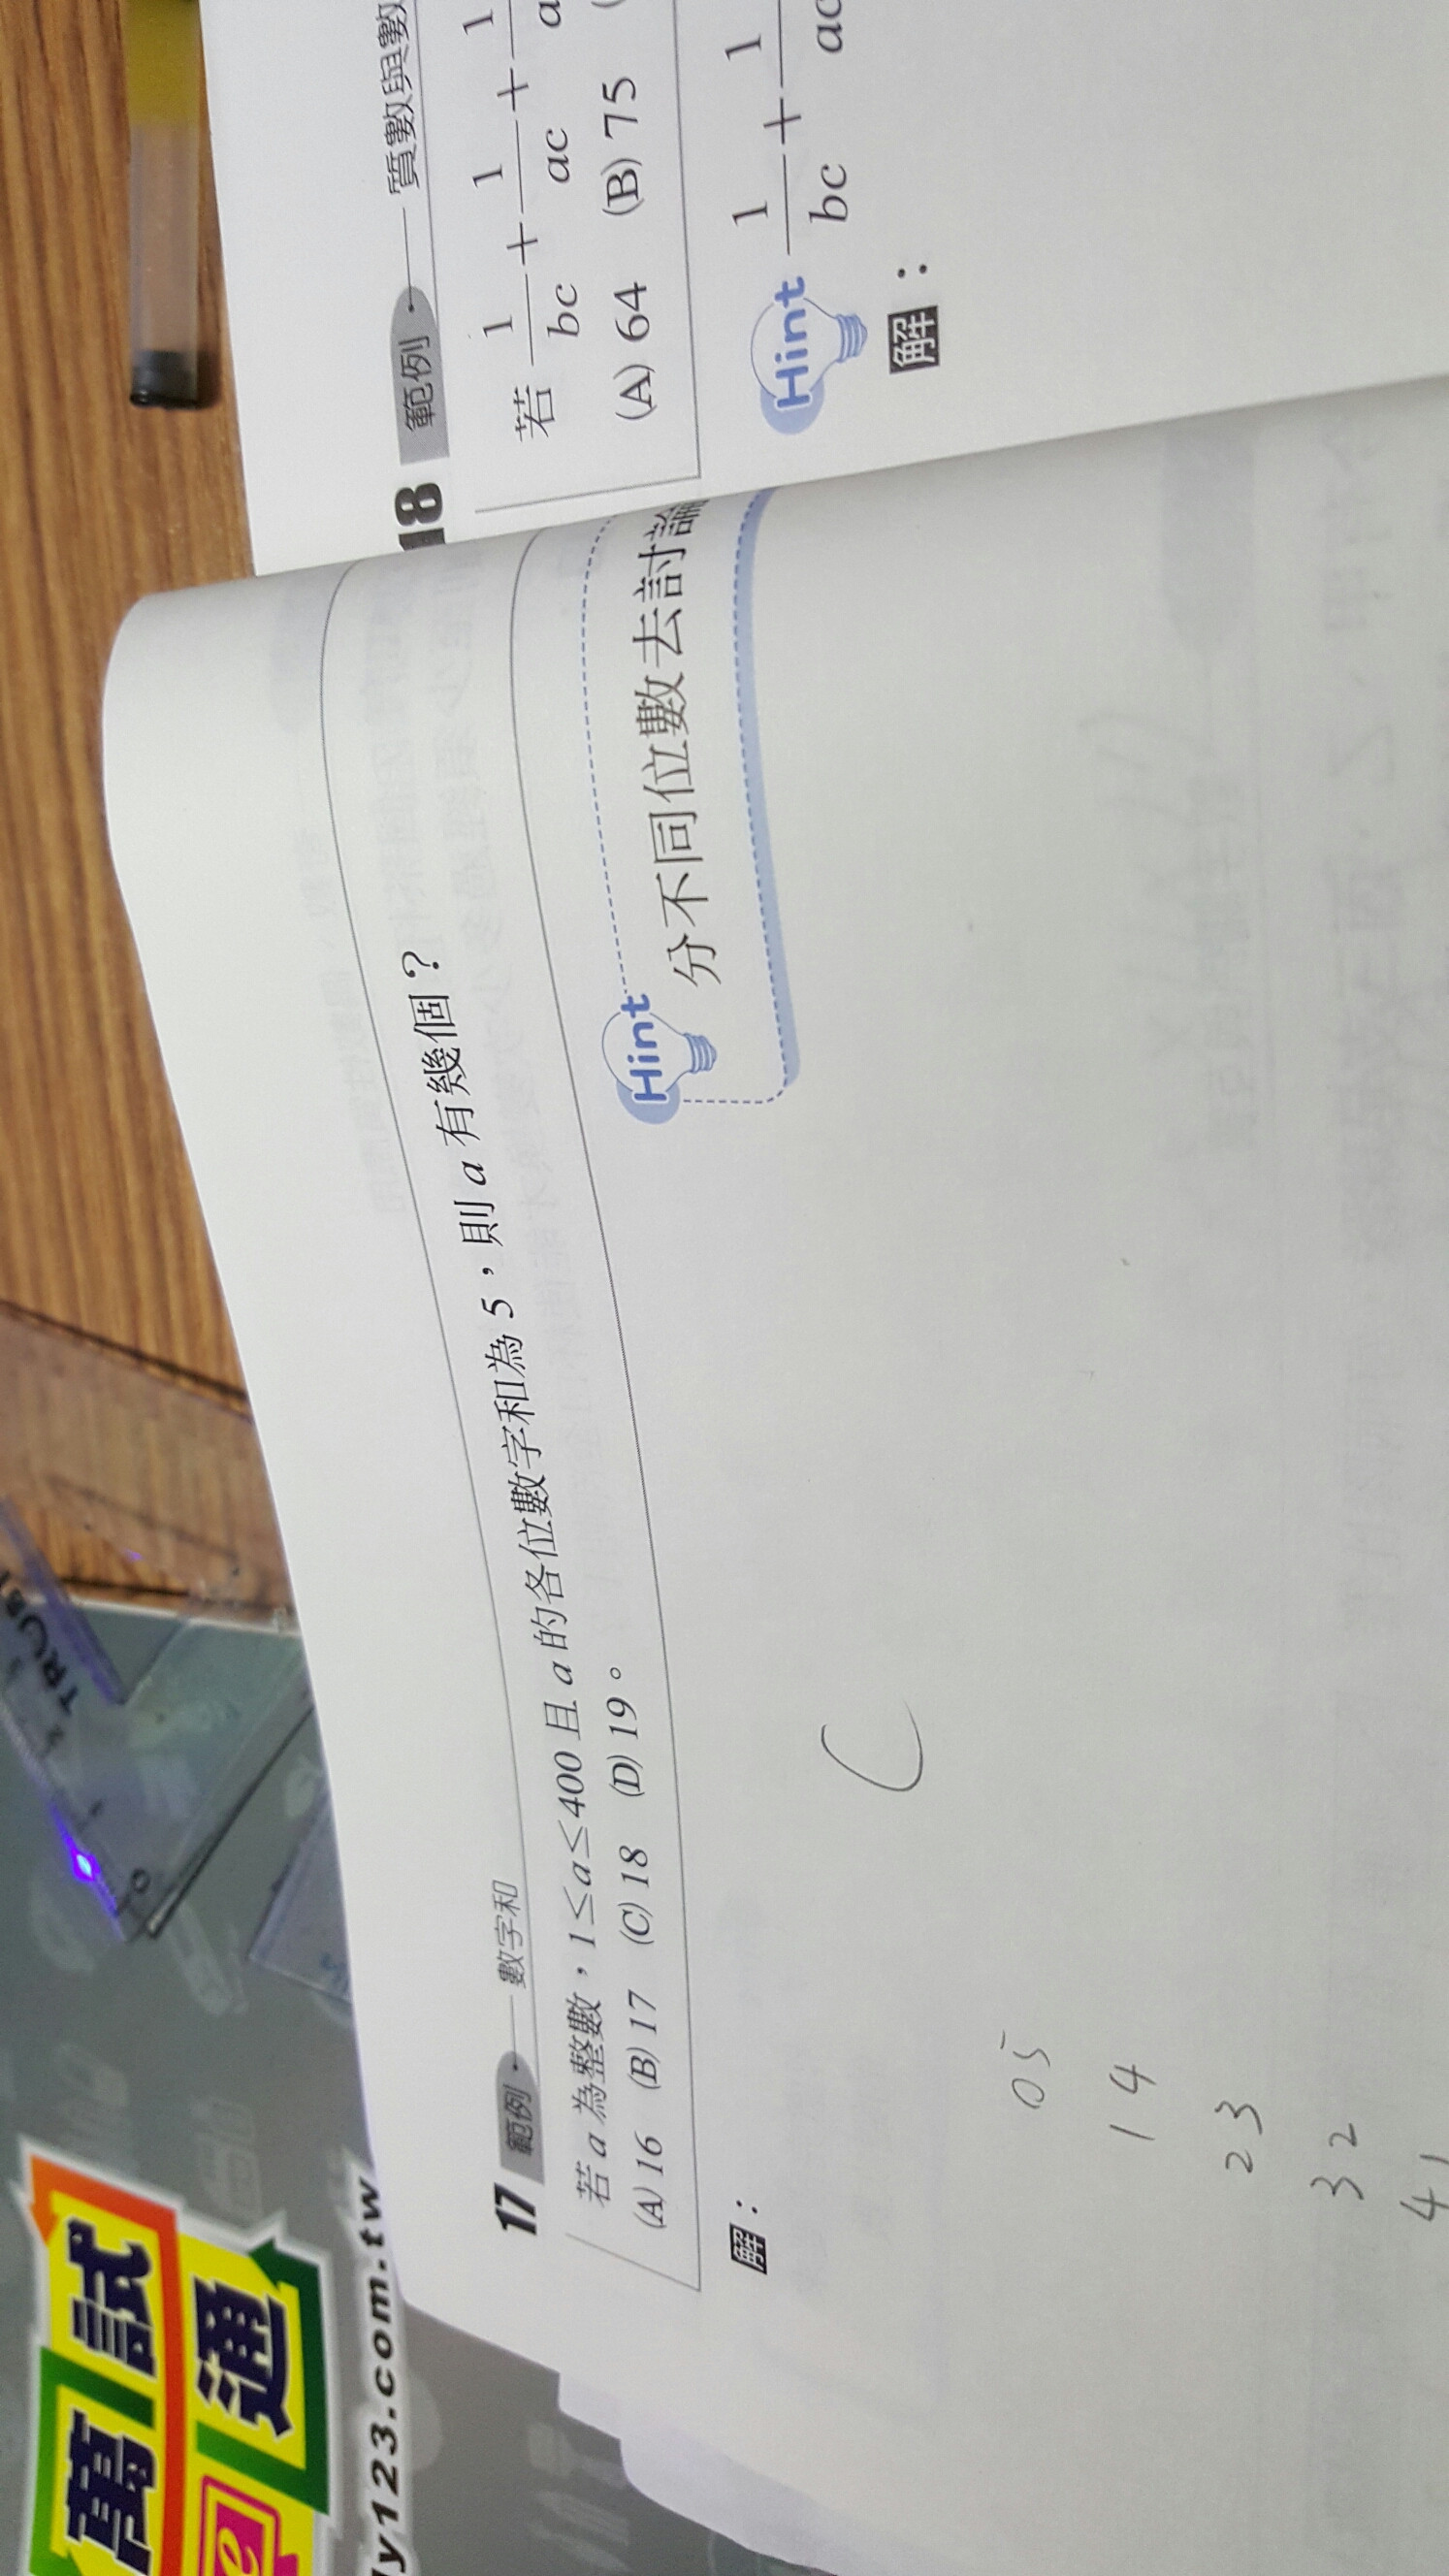 17 範例 數字和
若 a 為整數，1≤a≤400 且 a 的各位數字和為 5，則 a 有幾個？
(A) 16 (B) 17 (C) 18 (D) 19。
Hint
分不同位數去討論
解：
C
05
14
23
32
41
18 範例 質數與數
若 1/bc + 1/ac + 1
(A) 64 (B) 75
Hint 1/bc + 1/ac
解：
萬試通
e
y123.com.tw
TRUST